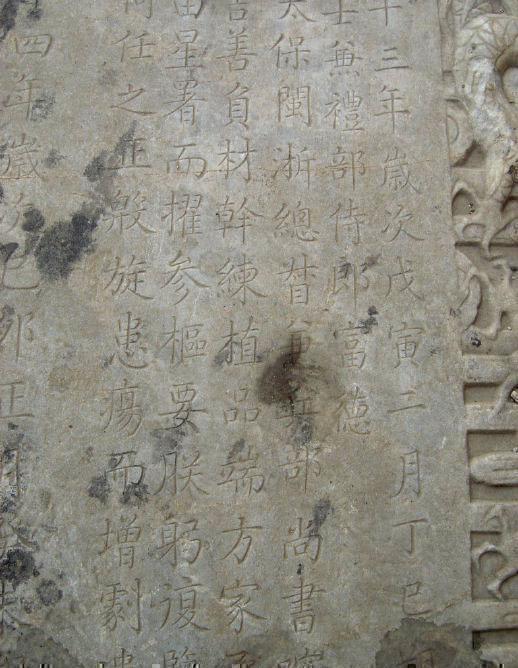 十三年歲次戊寅二月丁巳
士兼禮部侍郎富德
太保閩浙總督兼兵部尚書
吉善負材幹練植品端方家
星署而擢參樞要朕躬復
任之正殷旋患瘍而增劇
四年歲次己卯正月